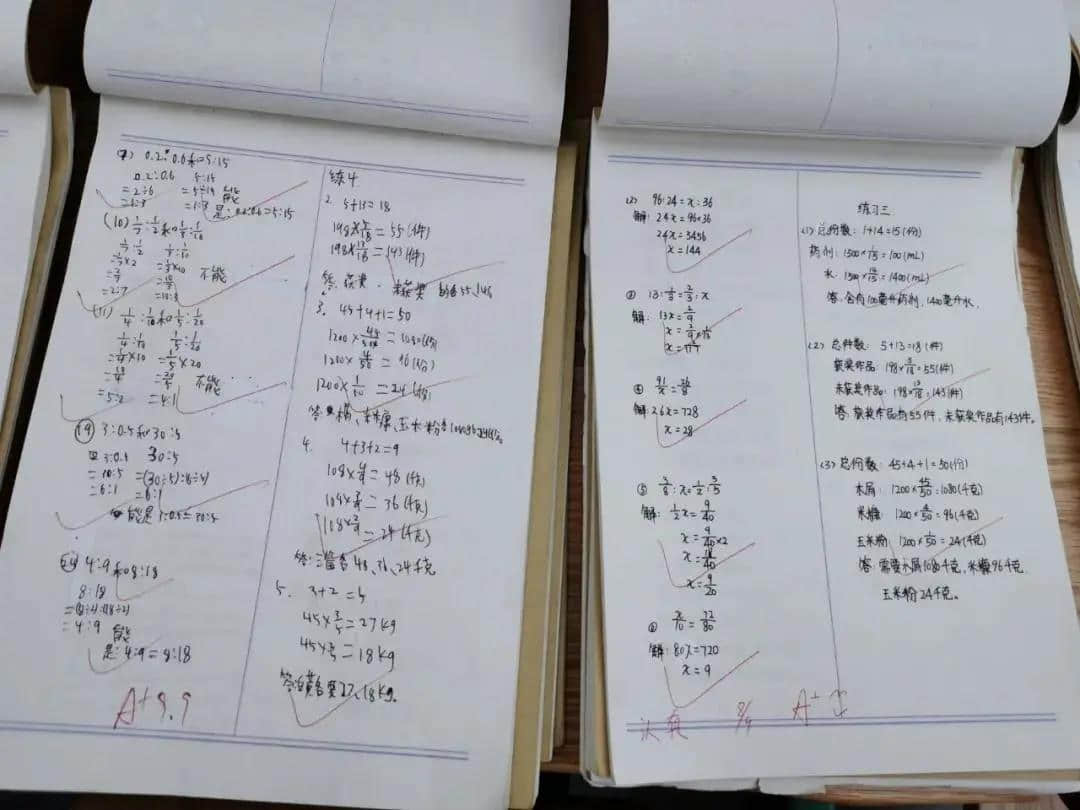 0.2:0.6和5:15
0.2:0.6 5:15
=2÷6 =5÷15 能
=1:3 =1:3 是:0.2:0.6=5:15
(10) 1/7:1/2和1/7:1/10
1/7:1/2 1/7:1/10
=1/7×2 =1/7×10 不能
=2/7 =10/7
=2:7
(11) 1/4:1/10和1/5:1/20
1/4:1/10 1/5:1/20
=1/4×10 =1/5×20
=10/4 =20/5 不能
=5:2 =4:1
3:0.5和30:5
3:0.5 30:5
=(30÷5):(5÷5)
=6:1 =6:1
能是3:0.5=30:5
4:9和8:18
8:18
=4:9 能
是:4:9=8:18
A+ 9.9
练4
2. 5+13=18
198×5/18=55(件)
198×13/18=143(件)
3. 45+4+1=50
1200×4/50=96(份)
1200×1/50=24(份)
4. 4+3+2=9
108×4/9=48(千克)
108×3/9=36(千克)
108×2/9=24(千克)
答:三篮各48、36、24千克
5. 3+2=5
45×3/5=27kg
45×2/5=18kg
(2) 96:24=x:36
解:24x=96×36
24x=3456
x=144
13:1/3=2/3:x
解:13x=2/9
x=2/9×1/13
x=2/117
④ 91/x=26/8
解:26x=728
x=28
⑤ 3/8:x=1/2:3/5
解:1/2x=9/40
x=9/40×2
x=18/40
x=9/20
⑥ x/10=72/80
解:80x=720
x=9
认真 9/9 A+
练习三
(1)总份数:1+14=15(份)
药剂:1500×1/15=100(mL)
水:1500×14/15=1400(mL)
答:含有100毫升药剂,1400毫升水。
(2)总件数:5+13=18(件)
获奖作品:198×5/18=55(件)
未获奖作品:198×13/18=143(件)
答:获奖作品有55件,未获奖作品有143件。
(3)总份数:45+4+1=50(份)
木屑:1200×45/50=1080(千克)
米糠:1200×4/50=96(千克)
玉米粉:1200×1/50=24(千克)
答:需要木屑1080千克,米糠96千克
玉米粉24千克。